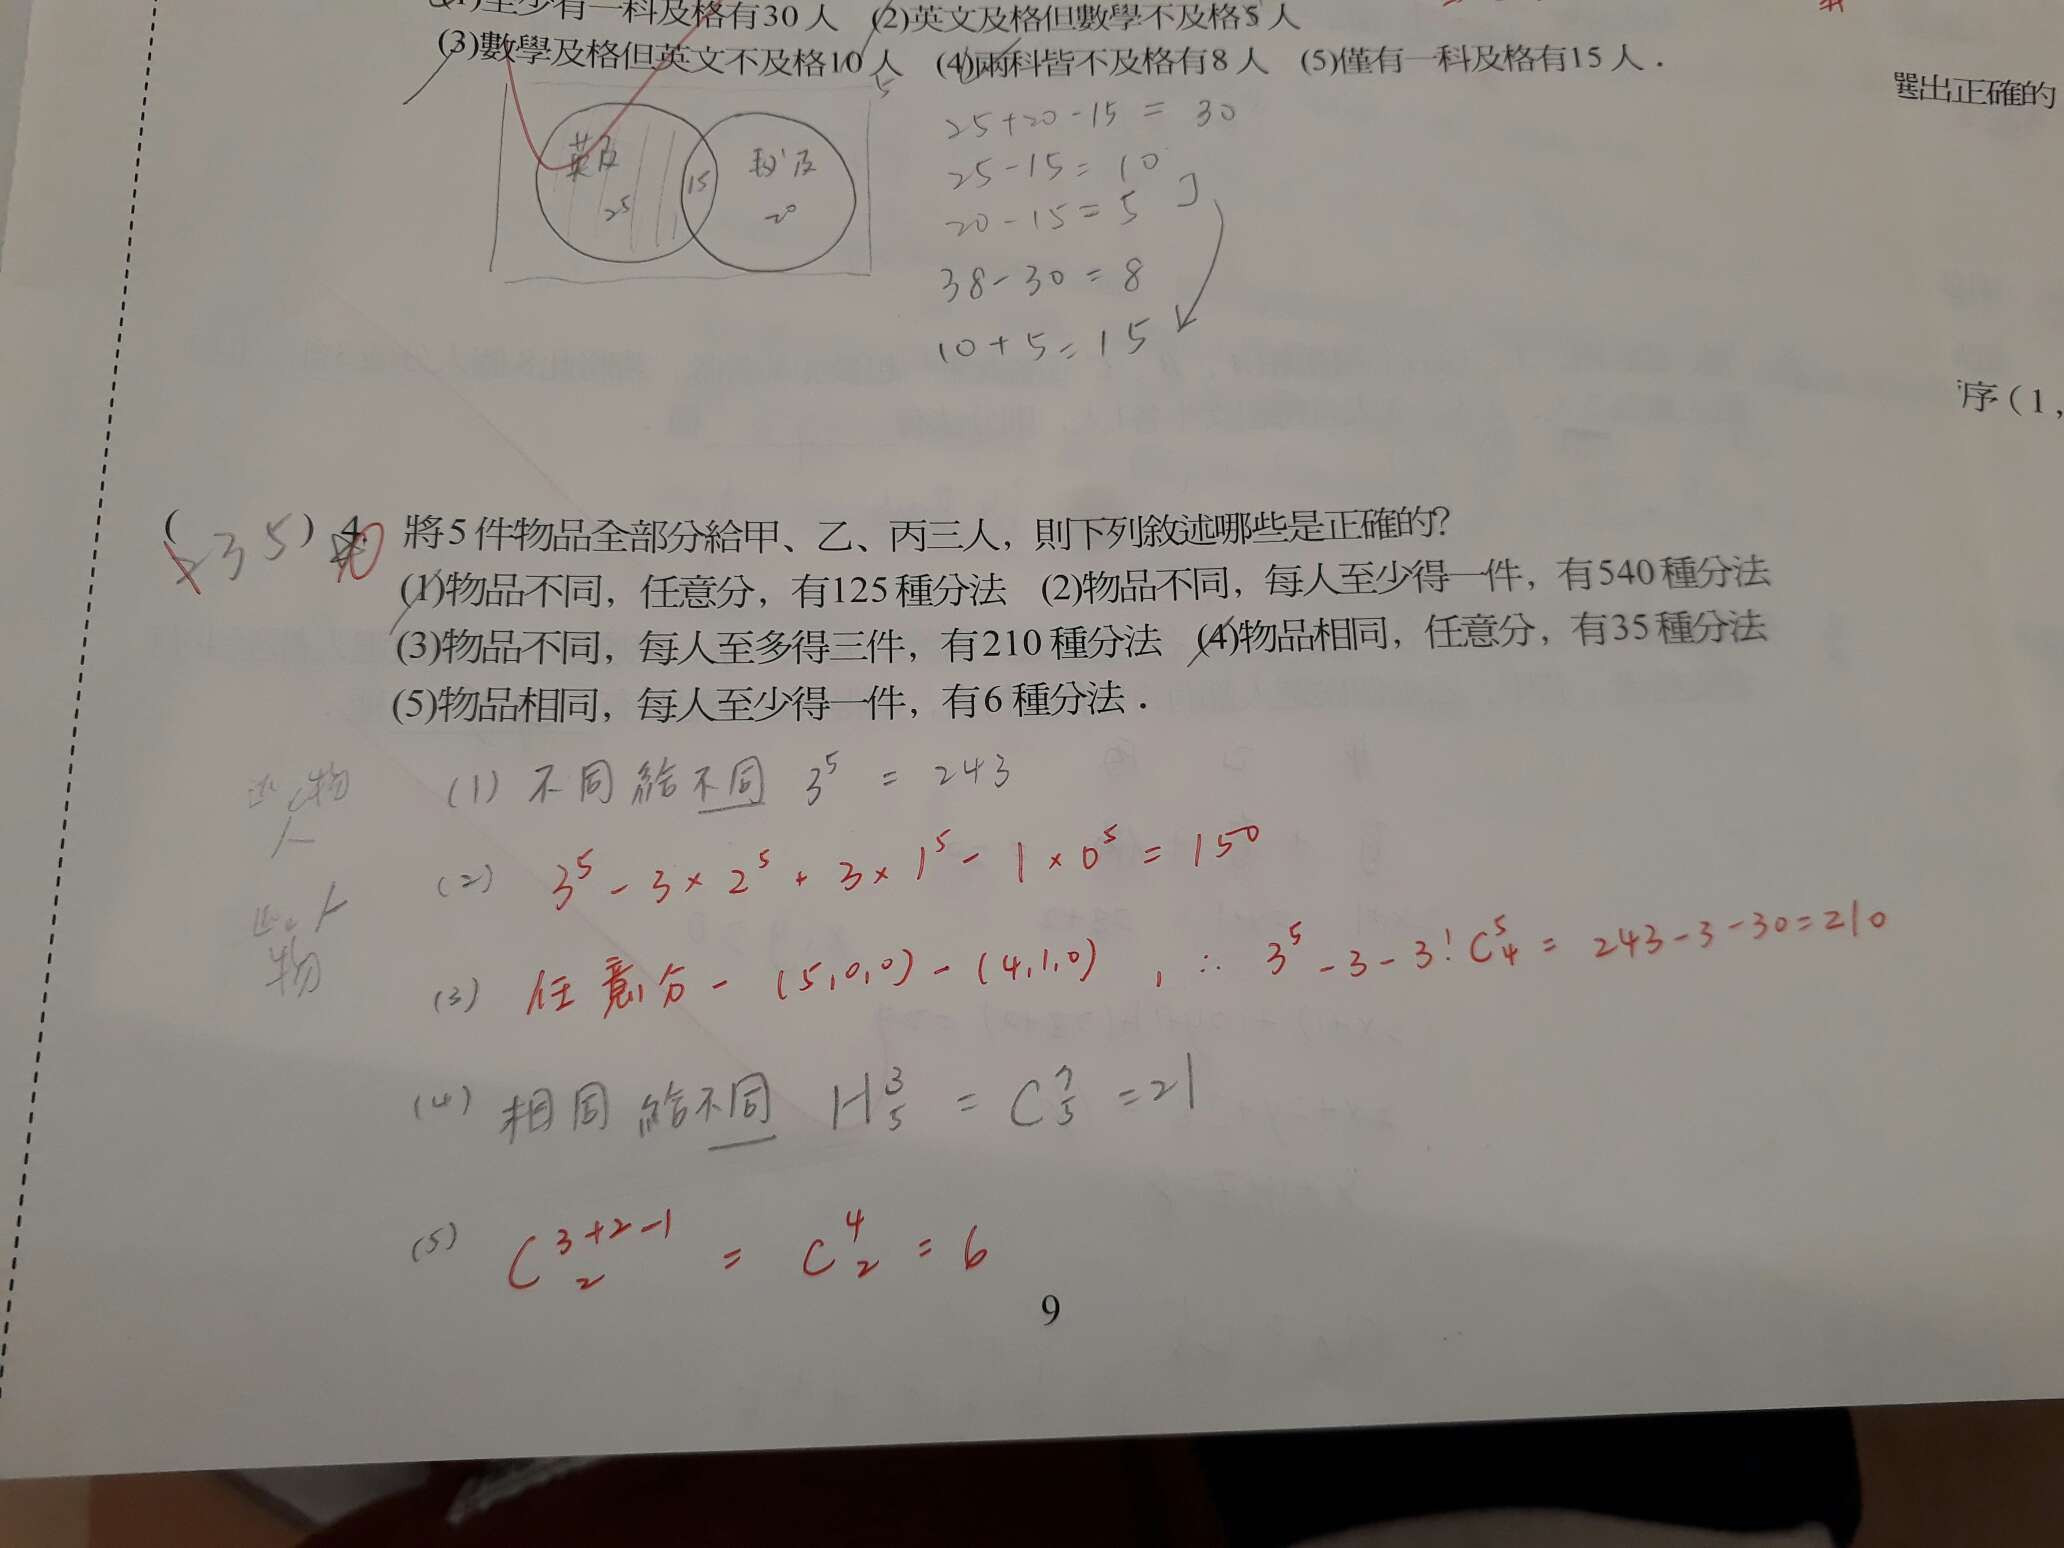 (1)至少有一科及格有30人 (2)英文及格但數學不及格5人
(3)數學及格但英文不及格10人 (4)兩科皆不及格有8人 (5)僅有一科及格有15人.
5
選出正確的
英及 25 15 數及 20
25+20-15=30
25-15=10
20-15=5
38-30=8
10+5=15
序(1,
(235) 4. 將5件物品全部分給甲、乙、丙三人,則下列敘述哪些是正確的?
(1)物品不同,任意分,有125種分法 (2)物品不同,每人至少得一件,有540種分法
(3)物品不同,每人至多得三件,有210種分法 (4)物品相同,任意分,有35種分法
(5)物品相同,每人至少得一件,有6種分法.
(1) 不同給不同 3⁵ = 243
(2) 3⁵ - 3×2⁵ + 3×1⁵ - 1×0⁵ = 150
(3) 任意分 - (5,0,0) - (4,1,0) , ∴ 3⁵ - 3 - 3! C⁵₄ = 243-3-30=210
(4) 相同給不同 H³₅ = C⁷₅ = 21
(5) C³⁺²⁻¹₂ = C⁴₂ = 6
物
人
人
物
9